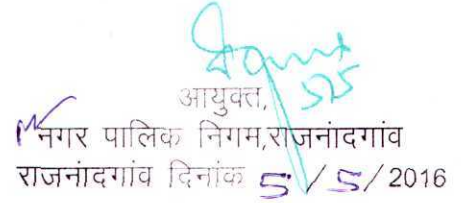 5/5
आयुक्त,
नगर पालिक निगम,राजनांदगांव
राजनांदगांव दिनांक 5 / 5 / 2016